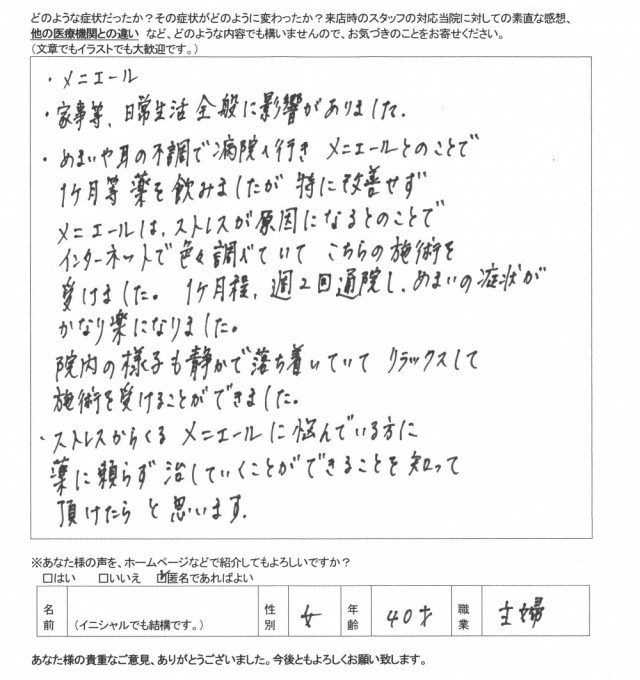 どのような症状だったか？その症状がどのように変わったか？来店時のスタッフの対応当院に対しての素直な感想、
他の医療機関との違い など、どのような内容でも構いませんので、お気づきのことをお寄せください。
（文章でもイラストでも大歓迎です。）
・メニエール
・家事等、日常生活全般に影響がありました.
・めまいや耳の不調で病院へ行き メニエールとのことで
1ヶ月等薬を飲みましたが 特に改善せず
メニエールは、ストレスが原因になるとのことで
インターネットで色々調べていて こちらの施術を
受けました。 1ヶ月程、週2回通院し、めまいの症状が
かなり楽になりました。
院内の様子も静かで落ち着いていて リラックスして
施術を受けることができました。
・ストレスからくる メニエールに悩んでいる方に
薬に頼らず 治していくことができることを知って
頂けたら と思います.
※あなた様の声を、ホームページなどで紹介してもよろしいですか？
□はい □いいえ ☑匿名であればよい
名前 （イニシャルでも結構です。） 性別 女 年齢 40才 職業 主婦
あなた様の貴重なご意見、ありがとうございました。今後ともよろしくお願い致します。